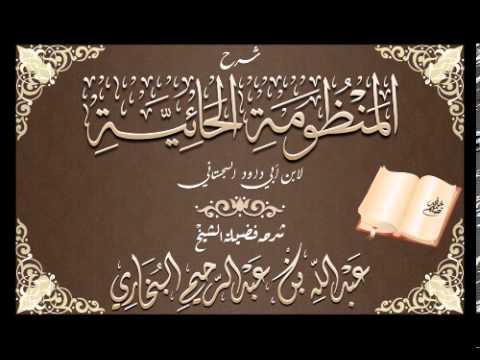 شرح
المَنْظُومَةِ الحَائِيَّةِ
لابن أبي داود السجستاني
شرحه فضيلة الشيخ
عَبْدُ اللَّهِ بْنُ عَبْدِ الرَّحِيمِ البُخَارِي